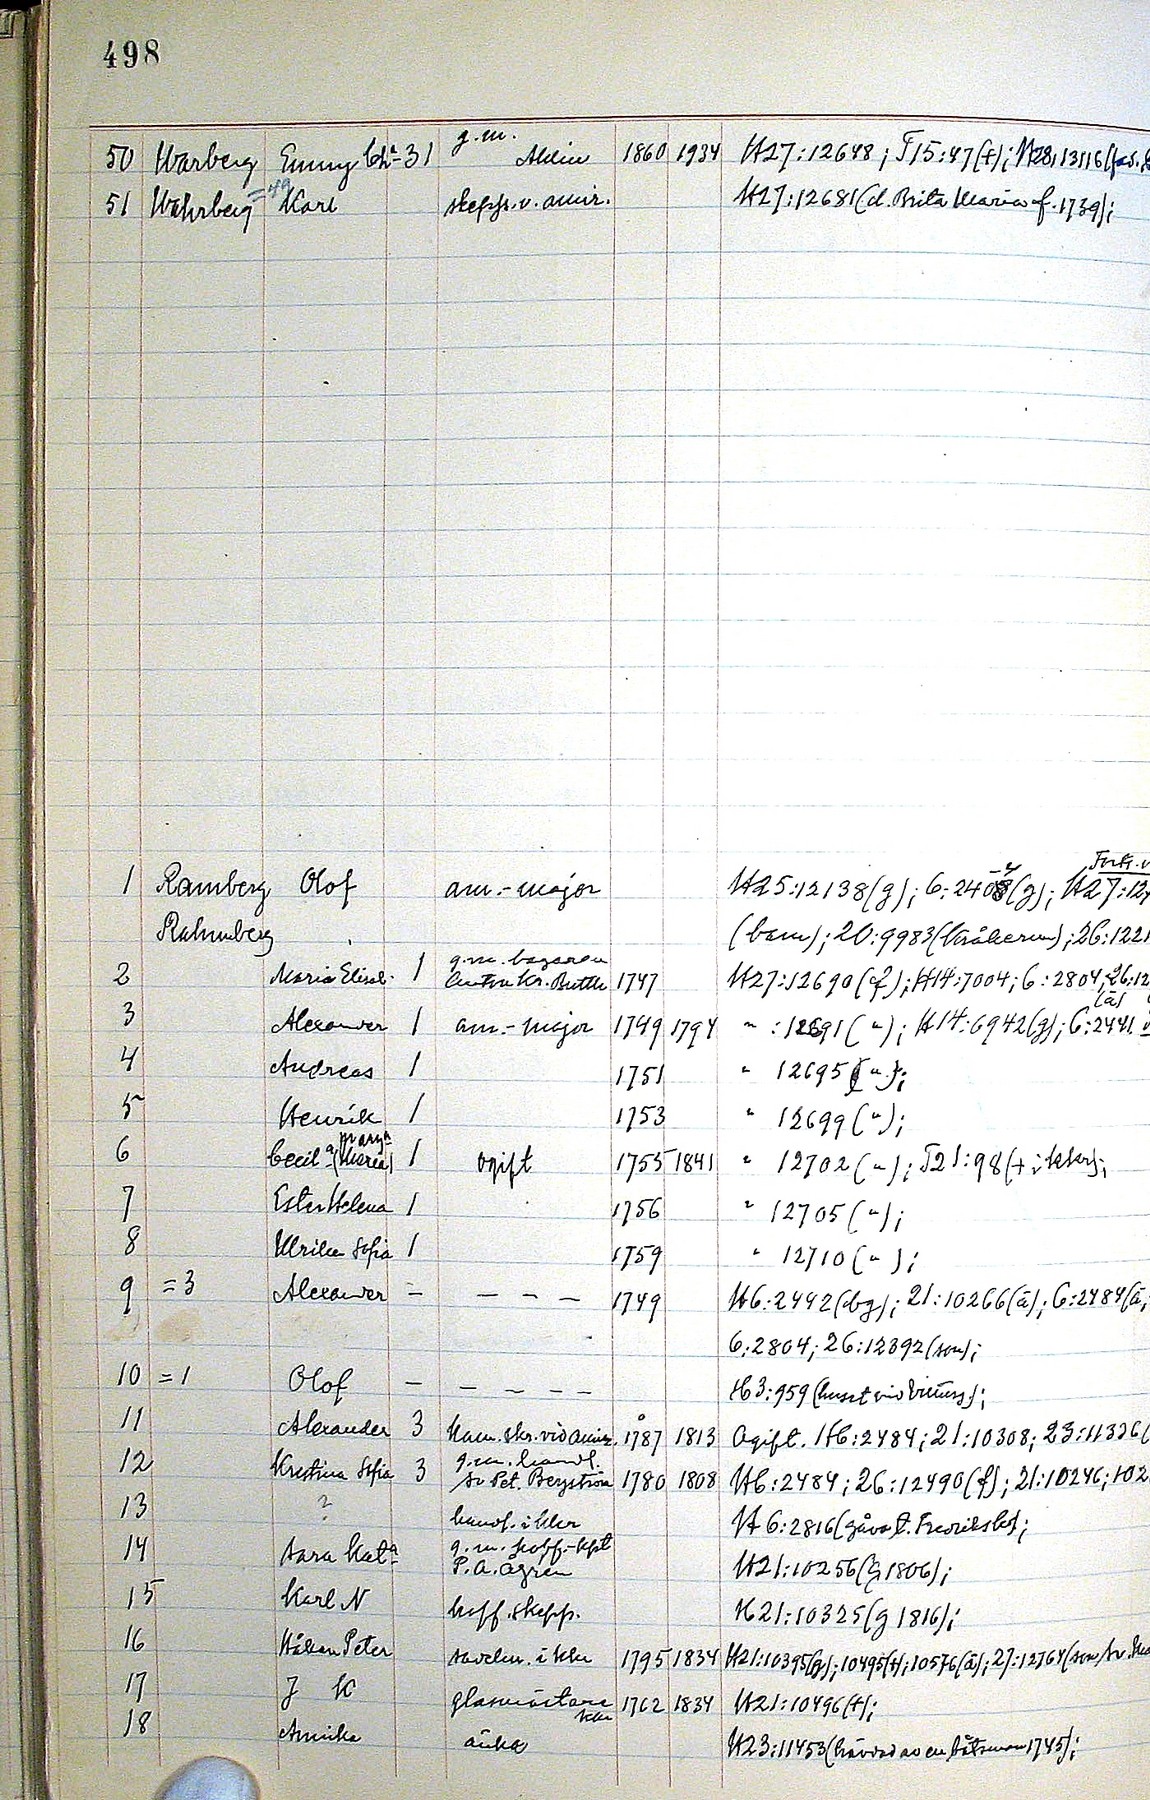 498
50 Warberg Emmy Ch:a 31 g.m. Ahlin 1860 1934 H27:12648; T15:47(†); H28:13116(
51 Wahrberg =49 Karl skepps.v. amir. H27:12681(d. Brita Maria f. 1739);
Forts. v
1 Ramberg Olof am.-major H25:12138(g); 6:2408(g); H27:12
Rahmberg (barn); 20:9983( 26:1221
2 Maria Elisab. 1 g.m. bagaren Anton Kr. Buttle 1747 H27:12690(f); H14:7004; 6:2804; 26:12
3 Alexander 1 am.-major 1749 1794 " :12691("); H14:6942(g); 6:2441 (ä)
4 Andreas 1 1751 " 12695(");
5 Henrik 1 1753 " 12699(");
6 Cecil:a (Maria) Marg:a 1 ogift 1755 1841 " 12702("); T21:98(† i kkr);
7 Ester Helena 1 1756 " 12705(");
8 Ulrika Sofia 1 1759 " 12710(");
9 =3 Alexander – – – – 1749 H6:2442(bg); 21:10266(ä); 6:2484(ä;
6:2804; 26:12392(son);
10 =1 Olof – – – – – H3:959(huset vid
11 Alexander 3 Kam. skr. vid amir. 1787 1813 Ogift. H6:2484; 21:10308; 23:11326(
12 Kristina Sofia 3 g.m. handl. Sv. Pet. Bergström 1780 1808 H6:2484; 26:12490(f); 21:10246; 102
13 ? handl. i kkr H6:2816(gåva t. Fredrikskk);
14 Sara Kat:a g.m. koff.-kpt P.A. Ågren H21:10256(g 1806);
15 Karl N koff. skepp. H21:10325(g 1816);
16 Håkan Peter sadelm. i kkr 1795 1834 H21:10395(g); 10495(†); 10576(ä); 27:12764(son,
17 J K glasmästare kkr 1762 1834 H21:10496(†);
18 Annika änka H23:11453(hävdad av en båtsman 1745);